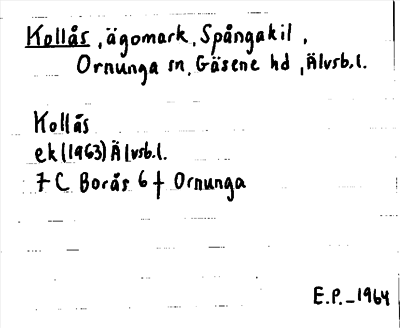 Kollås, ägomark, Spångakil,
Ornunga sn, Gäsene hd, Älvsb.l.
Kollås
ek (1963) Älvsb.l.
7 C Borås 6 f Ornunga
E.P. - 1964